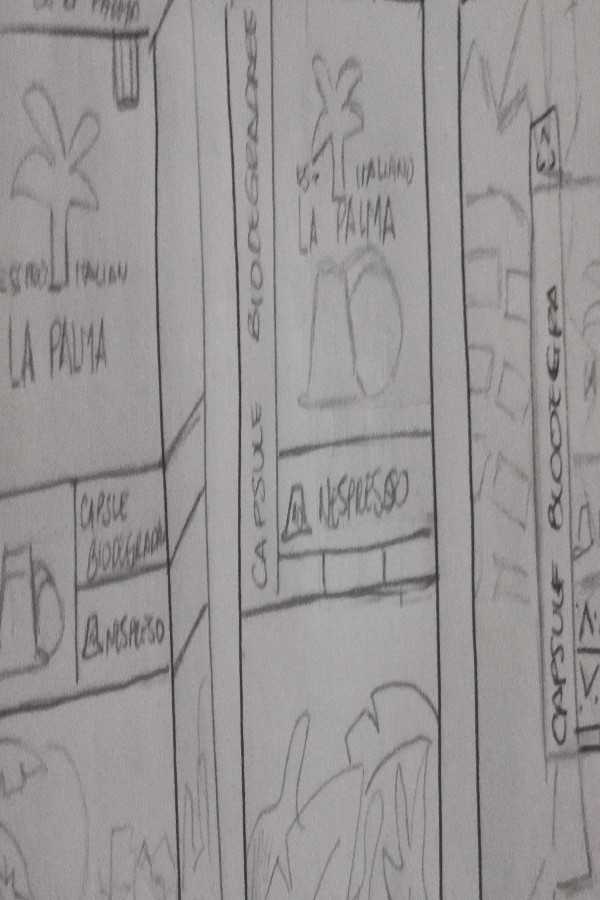 LA PALMA
ITALIAN
LA PALMA
CAPSLE
BIODEGRADA
NESPRESSO
CAPSULE BIODEGRADABLE
ITALIANO
LA PALMA
NESPRESSO
CAPSULE BIODEGRA